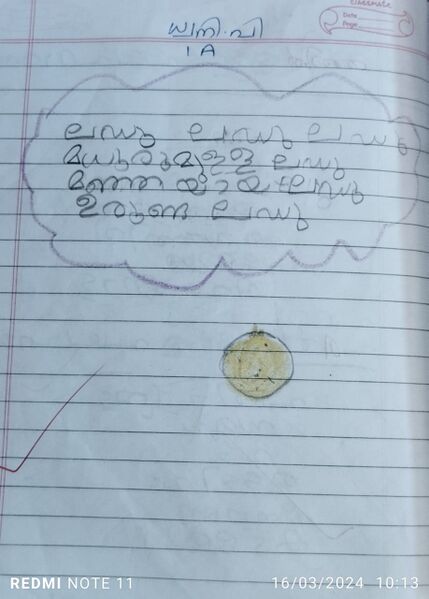 classmate
Date
Page
ധ്വനി.പി
1 A
ലഡു ലഡു ലഡു
മധുരമുള്ള ലഡു
മഞ്ഞ യായ ലഡു
ഉരുണ്ട ലഡു
REDMI NOTE 11
16/03/2024 10:13